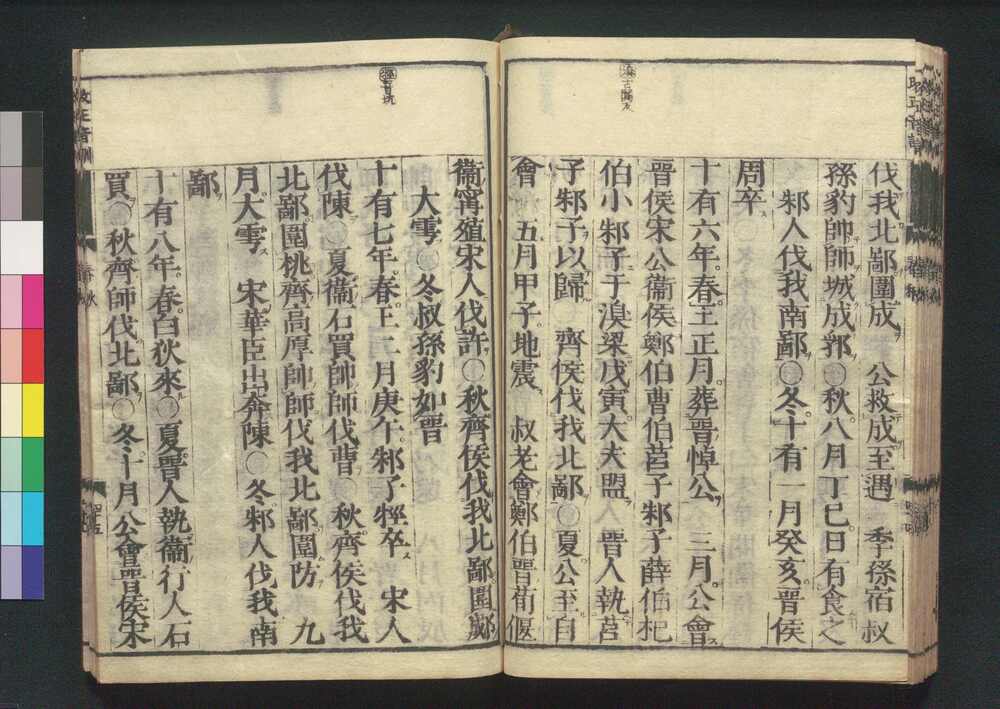 伐我北鄙圍成 公救成至遇 季孫宿叔
孫豹帥師城成郛 秋八月丁巳日有食之
邾人伐我南鄙 冬十有一月癸亥晉侯
周卒
十有六年春王正月葬晉悼公 三月公會
晉侯宋公衞侯鄭伯曹伯莒子邾子薛伯杞
伯小邾子于湨梁戊寅大夫盟 晉人執莒
子邾子以歸 齊侯伐我北鄙 夏公至自
會 五月甲子地震 叔老會鄭伯晉荀偃
衞甯殖宋人伐許 秋齊侯伐我北鄙圍郕
大雩 冬叔孫豹如晉
十有七年春王二月庚午邾子牼卒 宋人
伐陳 夏衞石買帥師伐曹 秋齊侯伐我
北鄙圍桃齊高厚帥師伐我北鄙圍防 九
月大雩 宋華臣出奔陳 冬邾人伐我南
鄙
十有八年春白狄來 夏晉人執衞行人石
買 秋齊師伐北鄙 冬十月公會晉侯宋
春秋